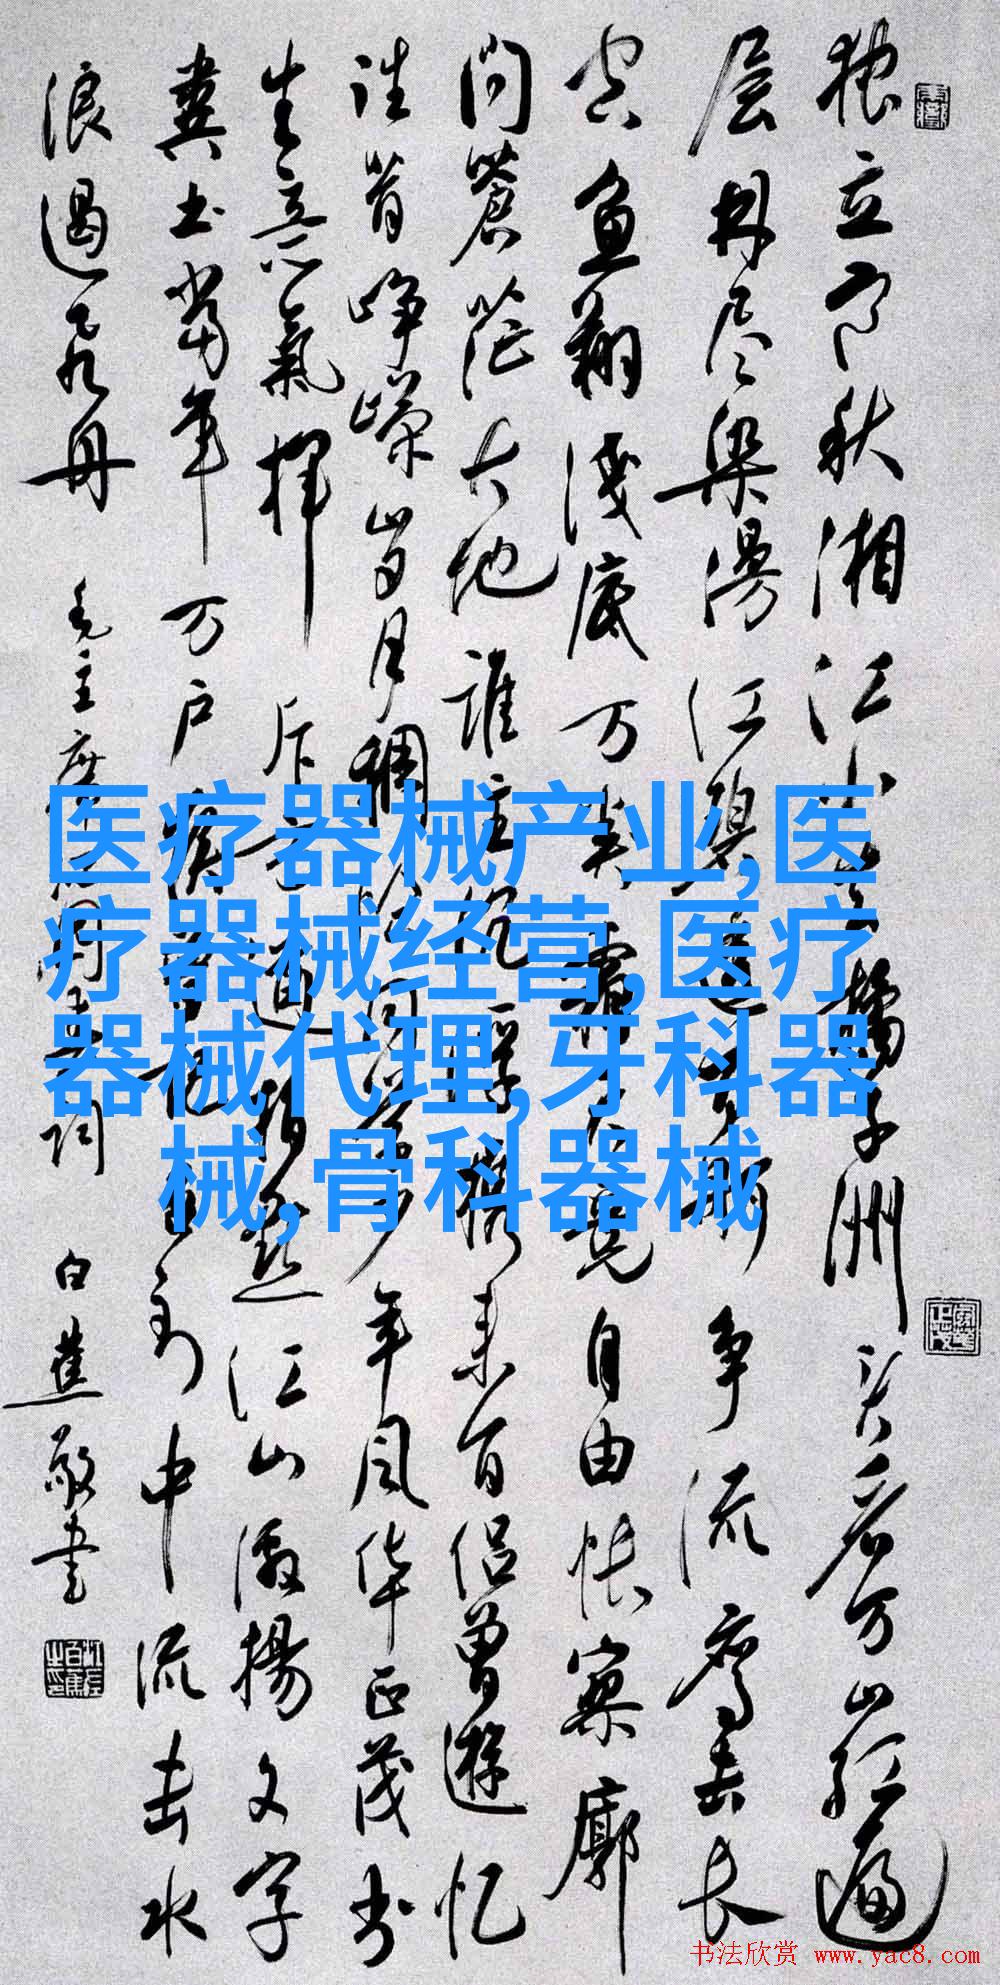 独立寒秋湘江北去橘子洲头看万山红遍
层林尽染漫江碧透百舸争流鹰击长
空鱼翔浅底万类霜天竞自由怅寥廓
问蒼茫大地誰主沉浮携来百侣曾遊忆
往昔峥嵘岁月稠恰同学少年风华正茂书
生意氣挥斥方遒指点江山激揚文字
粪土当年万户侯曾记否到中流击水
浪遏飞舟 毛主席沁园春词 白蕉敬书
医疗器械产业,医
疗器械经营,医疗
器械代理,牙科器
械,骨科器械
书法欣赏 www.yac8.com